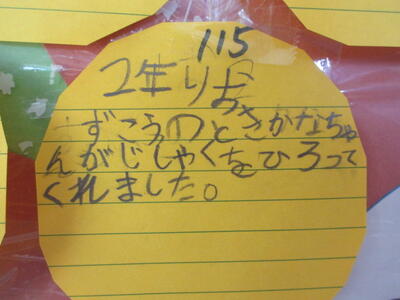 115
2年りお
ずこうのときかなちゃ
んがじしゃくをひろって
くれました。